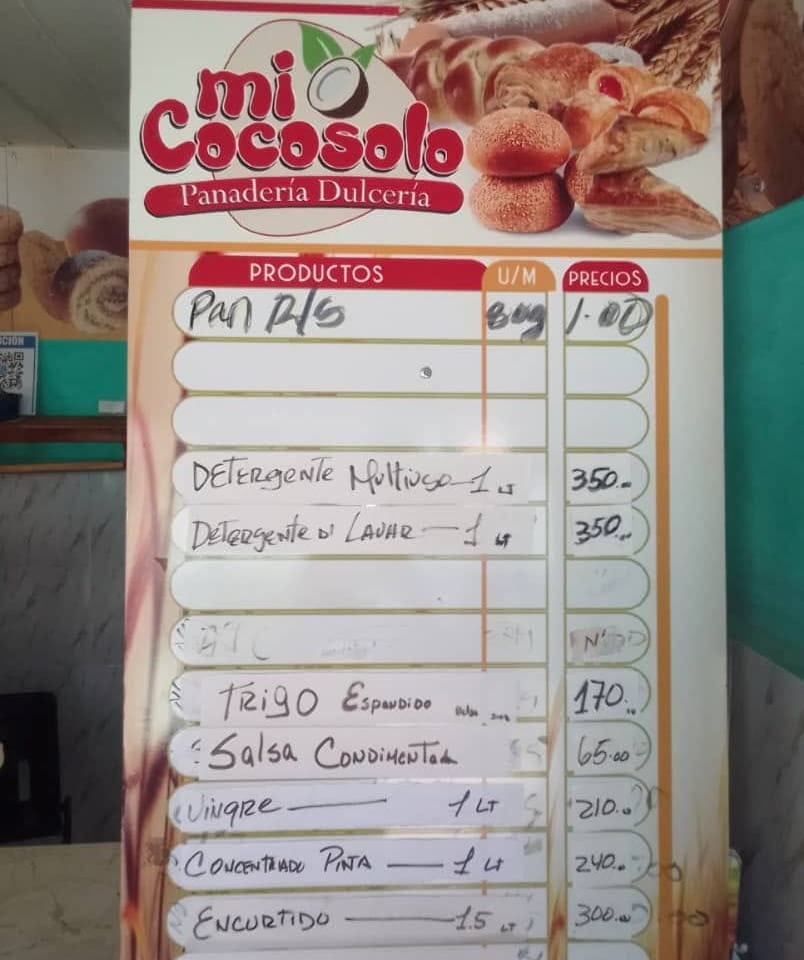 mi
Cocosolo
Panadería Dulcería
PRODUCTOS U/M PRECIOS
Pan R/S 80g 1.00
DETERGENTE Multiuso-1 LT 350.-
DETERGENTE DI LAVAR — 1 LT 350.-
TRIGO Espandido 170.
Salsa CONDIMENTADA 65.00
VINGRE — 1 LT 210.
CONCENTRADO PIÑA — 1 LT 240.
ENCURTIDO — 1.5 LT 300.